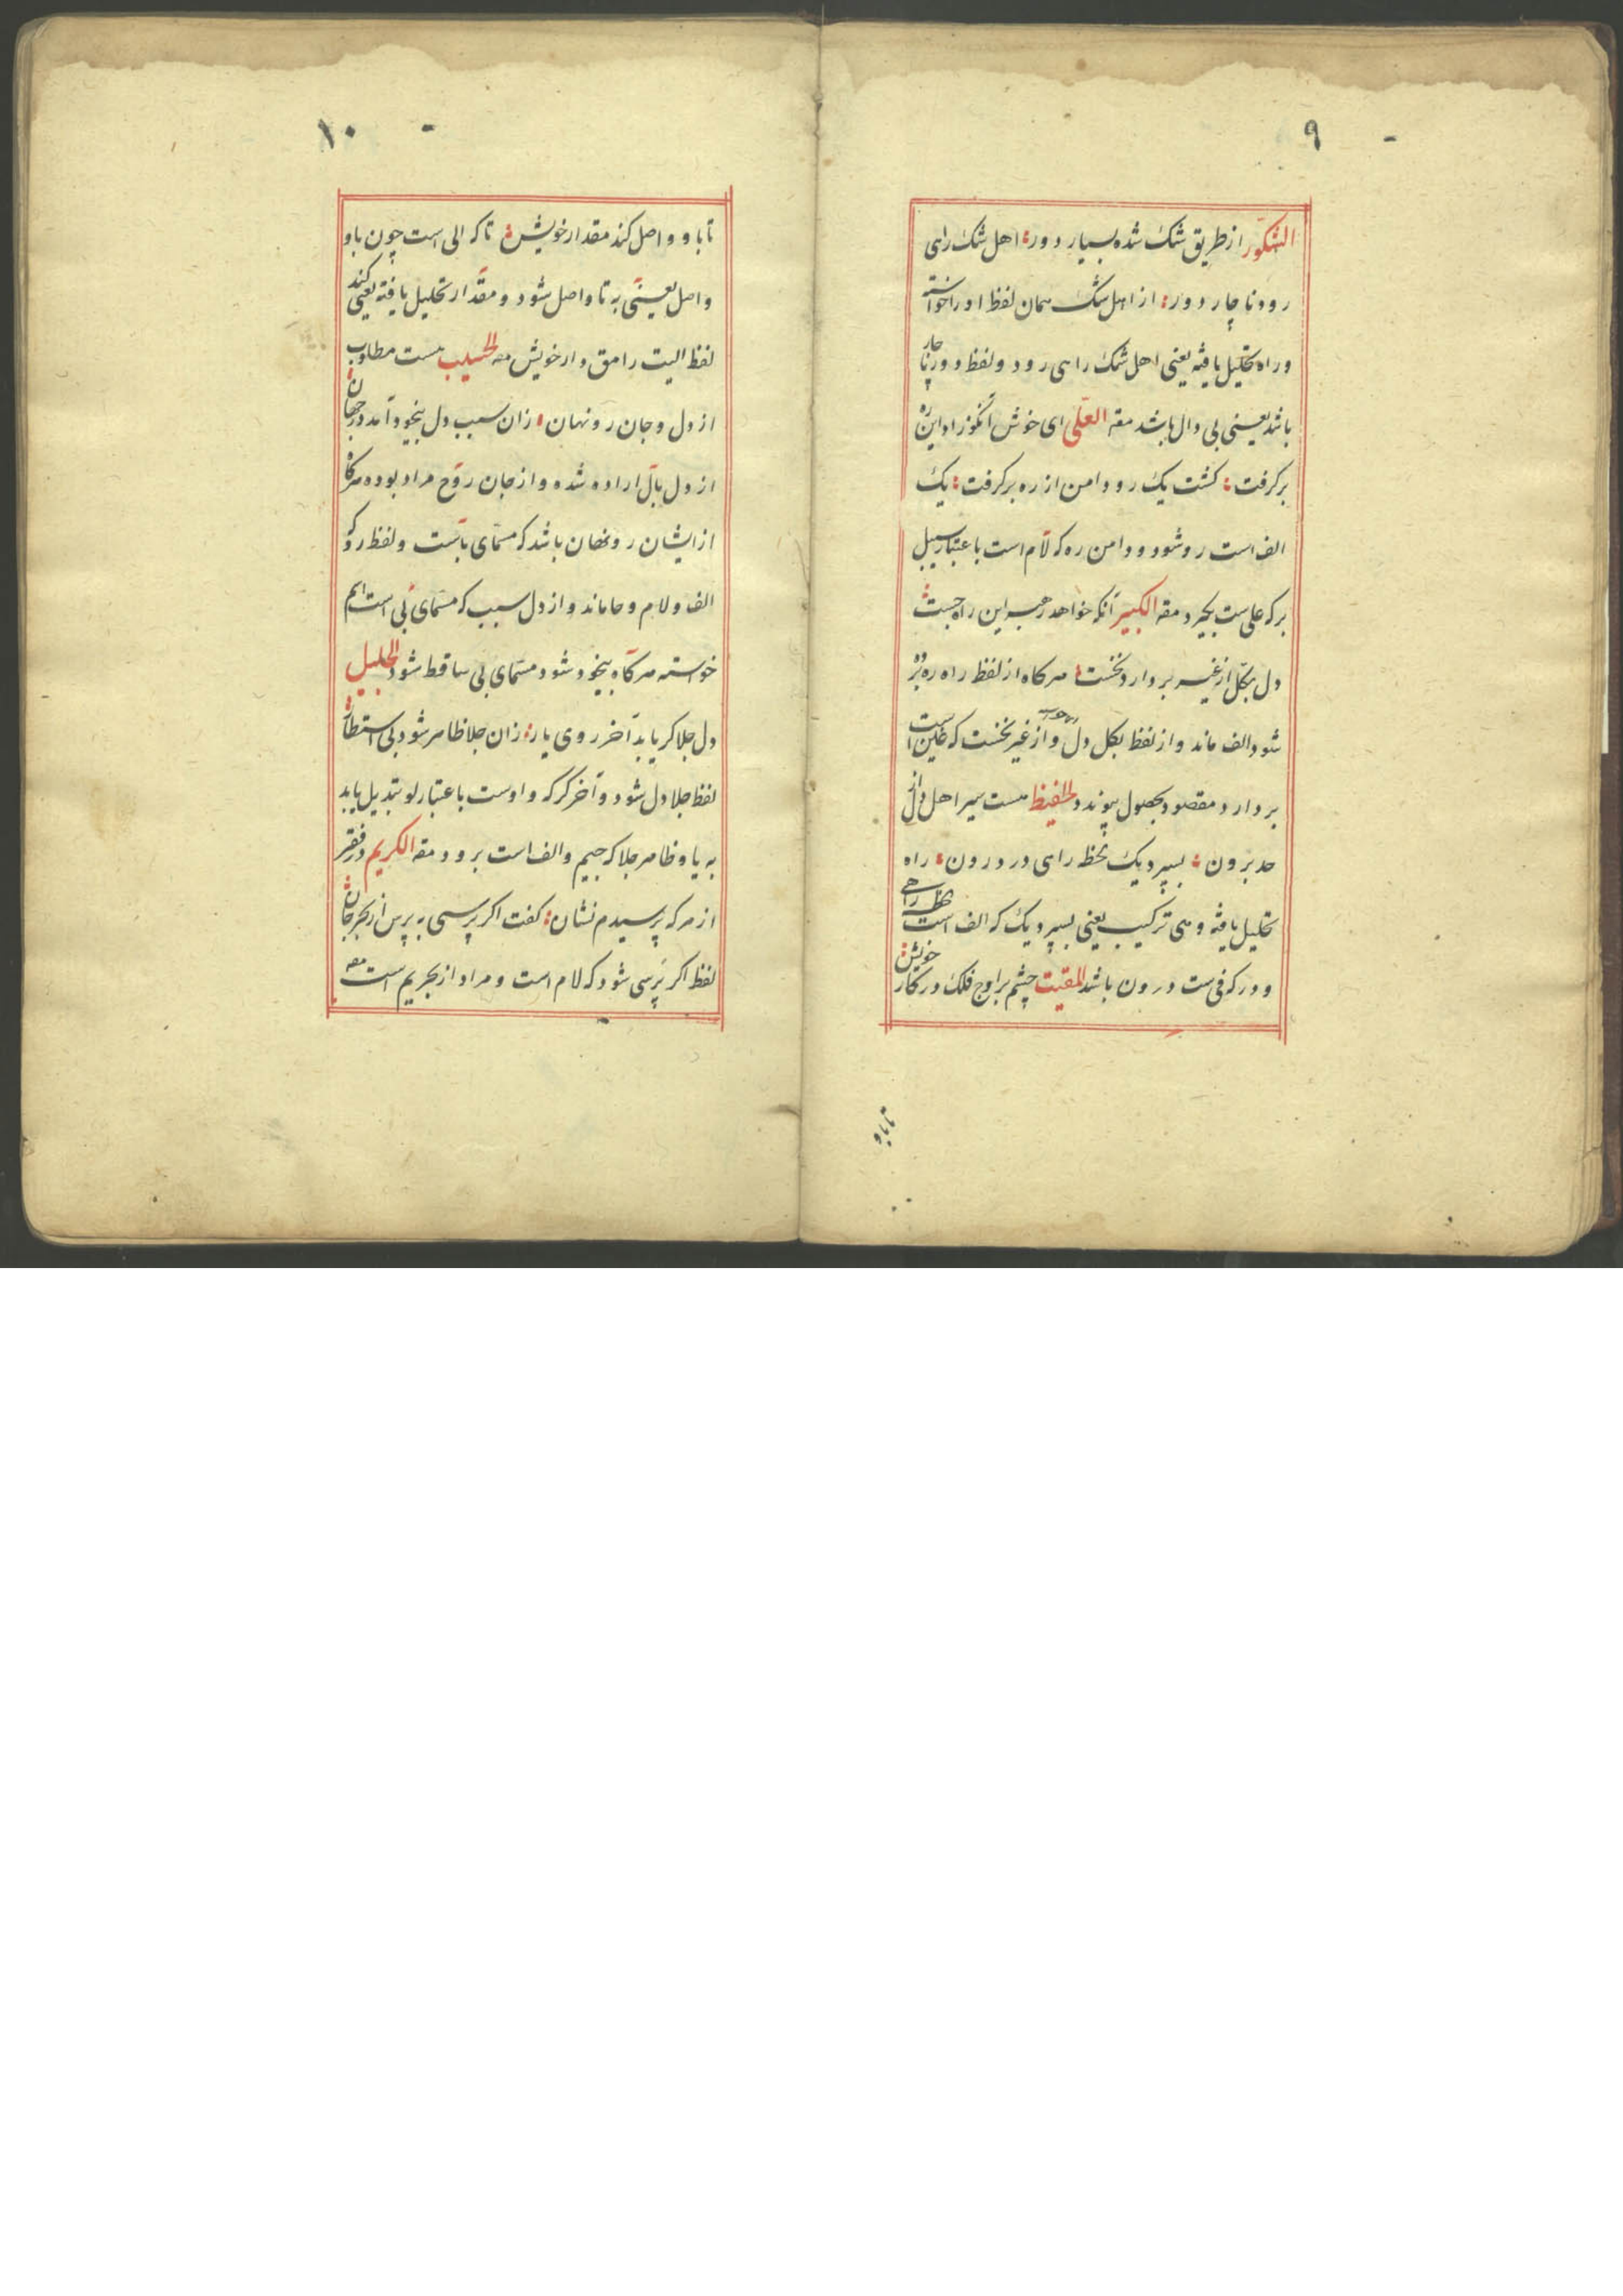 ۹
الشکور از طریق شک شده بسیار دور اهل شک راهی
رود ناچار دور از اهل شک همان لفظ او را خواسته
و راه تحلیل یافته یعنی اهل شک را هی رود و لفظ دور ناچار
باشد یعنی بی دال باشد مقه العلی ای خوش آنکو زاد این ره
برگرفت کشت یک رو دامن از ره برگرفت یک
الف است رو شود و دامن ره که لام است باعتبار سبیل
بر که علی ست بگیرد مقه الکبیر آنکه خواهد رهبر این راه جست
دل بکل از غیر بردارد نخست هرکاه از لفظ راه ره بر
شود الف ماند و از لفظ بکل دل و از غیر نخست که غین است
بردارد مقصود بحصول پیوندد الحفیظ هست سیر اهل دل از
حد برون بسپرد یک لحظ راهی در درون راه
تحلیل یافته و هی ترکیب یعنی بسپرد یک که الف است لحظ راهی
و در که فی ست درون باشد المقیت چشم بر اوج فلک در کار خویش
تا باو
۱۰
تا باو واصل کند مقدار خویش تا که الی است چون باو
واصل یعنی به تا واصل شود و مقدار تحلیل یافته یعنی کند
لفظ الیت را مق دار خویش مقه الحسیب هست مطلوب
از دل و جان رو نهان زان سبب دل بیخود آمد در جهان
از دل بال اراده شده و از جان روح مراد بوده هرکاه
از ایشان رو نهان باشد که مسمای باست و لفظ رو که
الف و لام و حا ماند و از دل سبب که مسمای بی است اسم
خواسته هرکاه بیخود شود مسمای بی ساقط شود الجلیل
دل جلا کر یابد آخر روی یار زان جلا ظاهر شود بی انتظار
لفظ جلا دل شود و آخر کر که و اوست باعتبار لو تبدیل یابد
به یا و ظاهر جلا که جیم و الف است برود مقه الکریم در فقر
از هرکه پرسیدم نشان کفت اکر پرسی به پرس از بحر جان
لفظ اکر پرسی شود که لام است و مراد از بحر یم است مقه